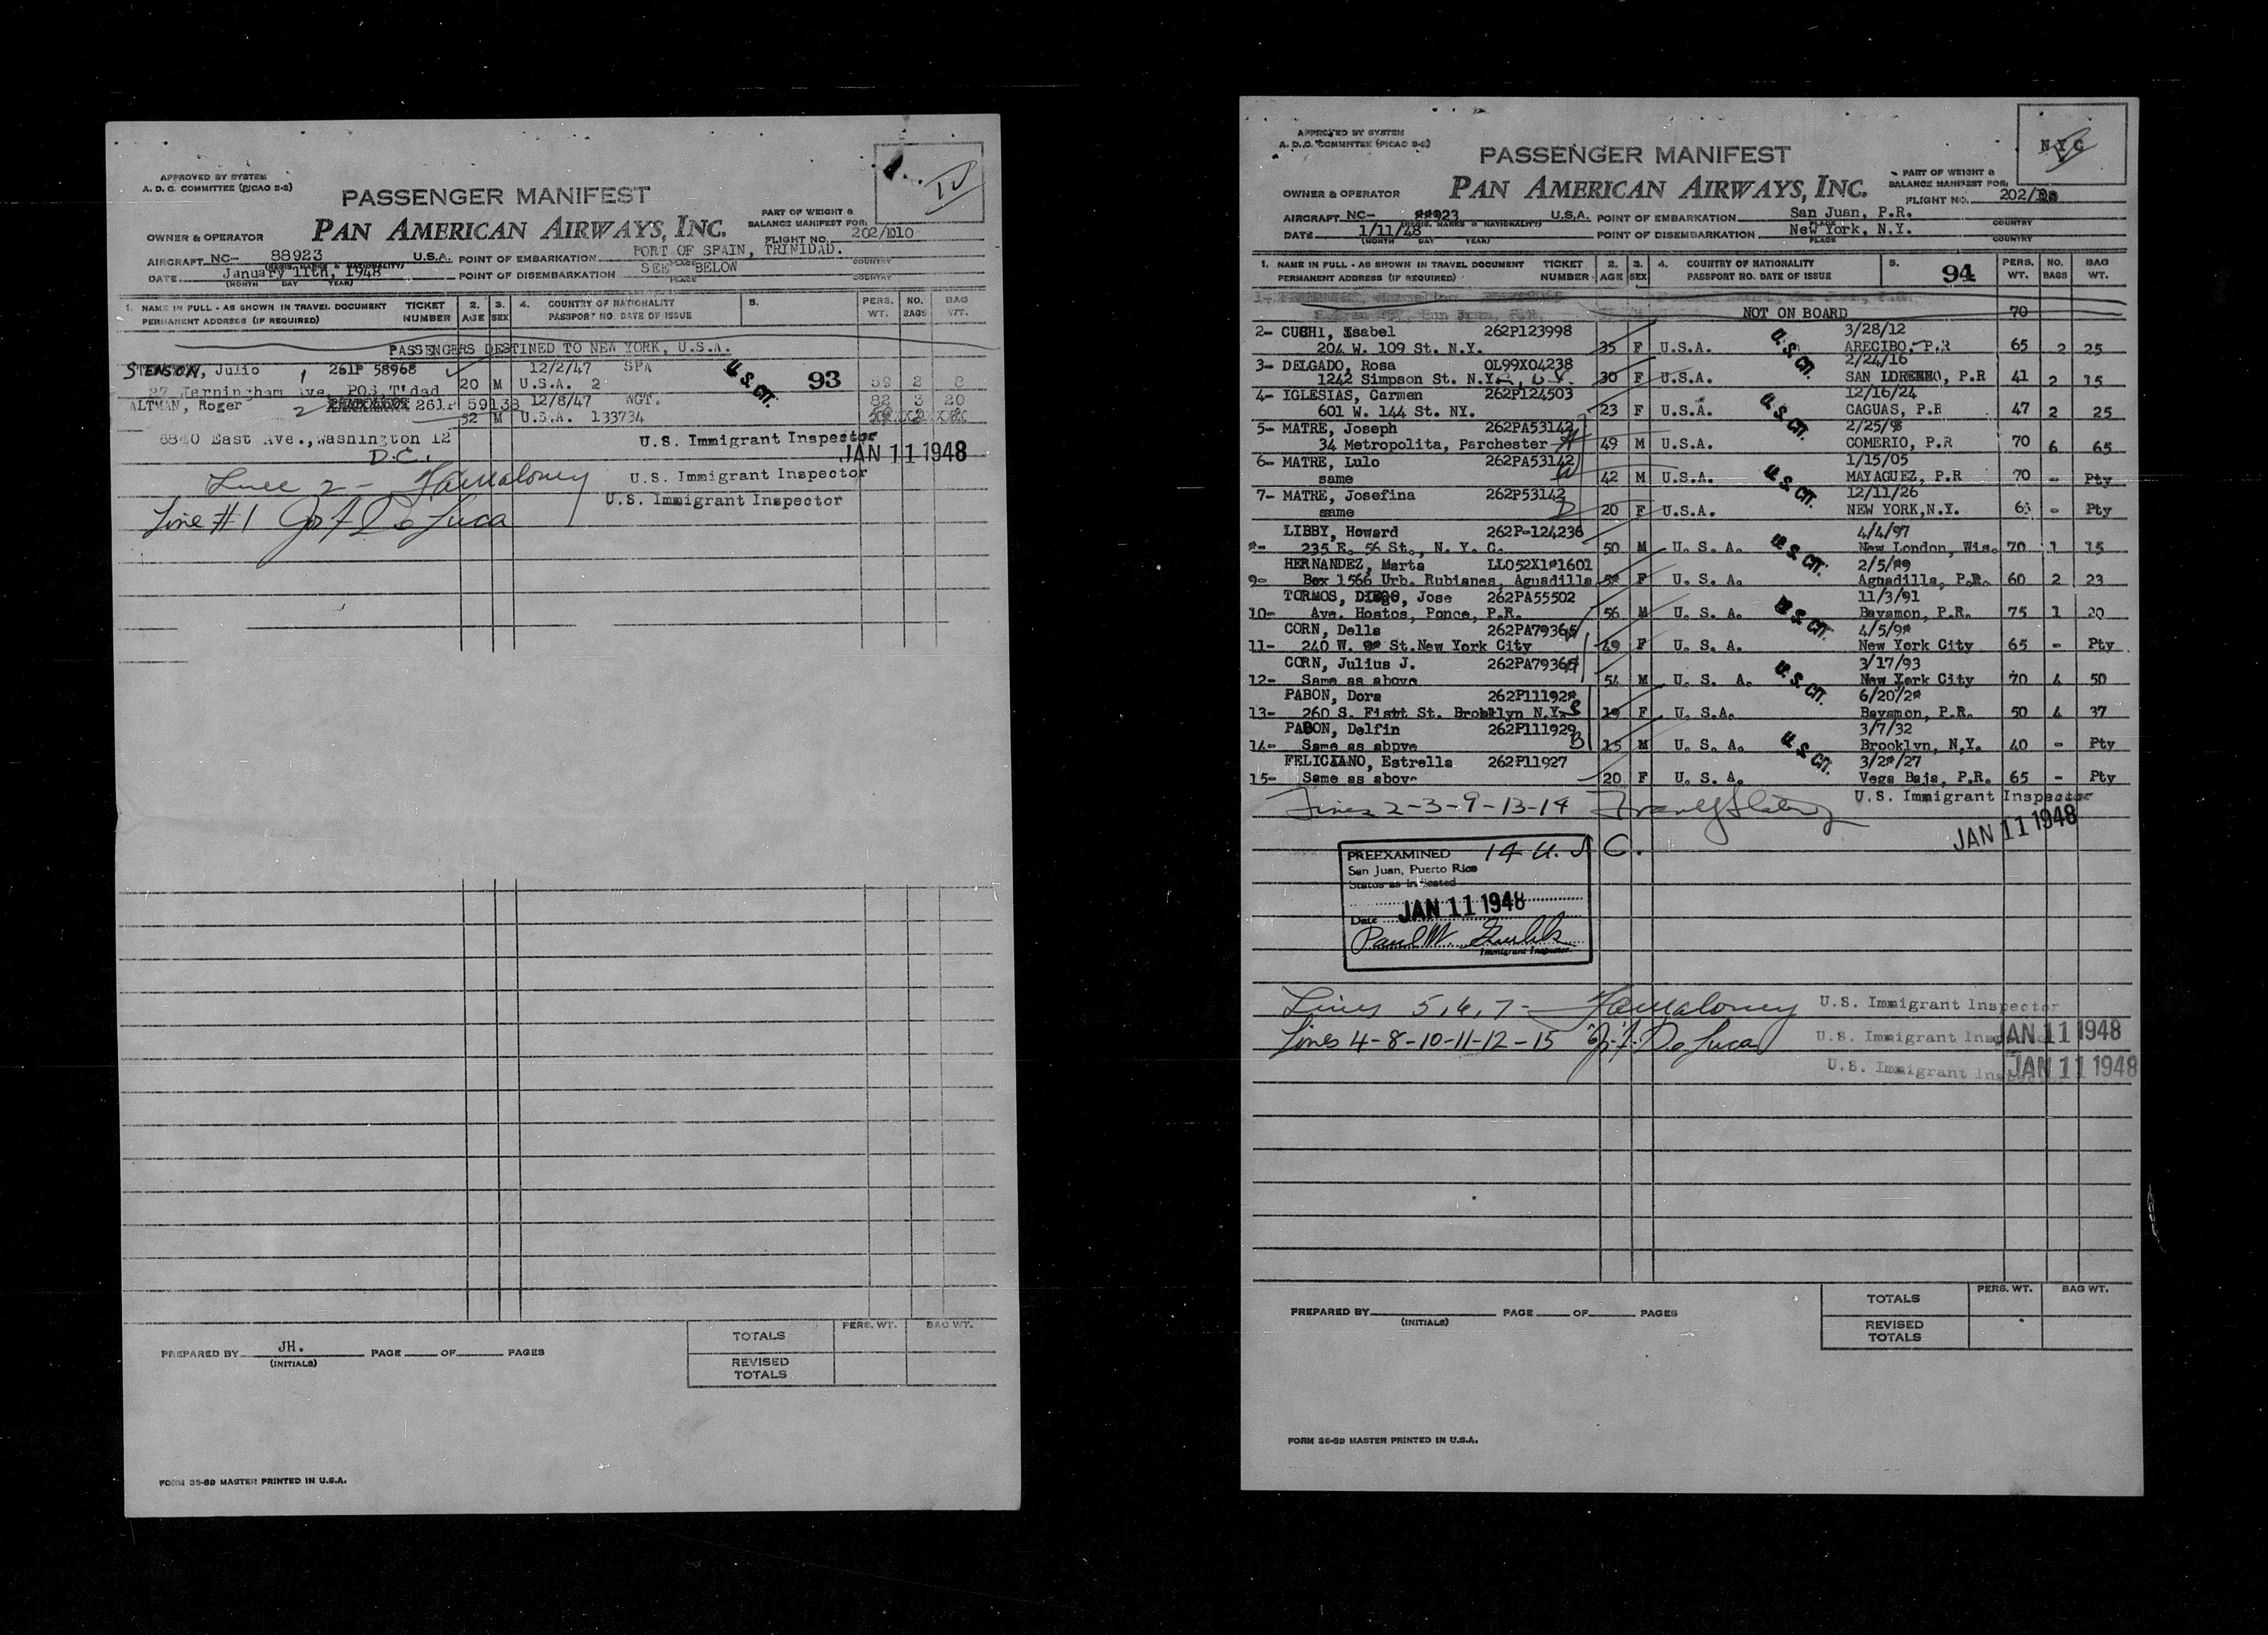 APPROVED BY SYSTEM
A. D. C. COMMITTEE (PICAO 2-2)
PASSENGER MANIFEST
PAN AMERICAN AIRWAYS, INC.
PART OF WEIGHT &
BALANCE MANIFEST FOR:
FLIGHT NO. 202/D10
OWNER & OPERATOR
AIRCRAFT NC- 88923 U.S.A. POINT OF EMBARKATION PORT OF SPAIN, TRINIDAD.
(REGIS. MARKS & NATIONALITY) PLACE COUNTRY
DATE January 11th, 1948 POINT OF DISEMBARKATION SEE BELOW
(MONTH DAY YEAR) PLACE COUNTRY
1. NAME IN FULL - AS SHOWN IN TRAVEL DOCUMENT TICKET 2. 3. 4. COUNTRY OF NATIONALITY 5. PERS. NO. BAG
PERMANENT ADDRESS (IF REQUIRED) NUMBER AGE SEX PASSPORT NO. DATE OF ISSUE WT. BAGS WT.
PASSENGERS DESTINED TO NEW YORK, U.S.A.
STENSON, Julio 1 261P 58968 12/2/47 SPA U.S. CIT. 93
27 Jerningham Ave. POS T'dad 20 M U.S.A. 2 59 2 8
ALTMAN, Roger 2 261P 59138 12/8/47 WGT. 82 3 20
52 M U.S.A. 133734
6840 East Ave., Washington 12 U.S. Immigrant Inspector
D.C. JAN 11 1948
Line 2 - FAMaloney U.S. Immigrant Inspector
Line #1 Jos F De Luca U.S. Immigrant Inspector
TOTALS PERS. WT. BAG WT.
PREPARED BY JH. PAGE OF PAGES
(INITIALS)
REVISED
TOTALS
FORM 36-59 MASTER PRINTED IN U.S.A.
APPROVED BY SYSTEM
A. D. C. COMMITTEE (PICAO 2-2)
NYC
PASSENGER MANIFEST
PAN AMERICAN AIRWAYS, INC.
PART OF WEIGHT &
BALANCE MANIFEST FOR:
FLIGHT NO. 202/
OWNER & OPERATOR
AIRCRAFT NC- 88923 U.S.A. POINT OF EMBARKATION San Juan, P.R.
(REGIS. MARKS & NATIONALITY) PLACE COUNTRY
DATE 1/11/48 POINT OF DISEMBARKATION New York, N.Y.
(MONTH DAY YEAR) PLACE COUNTRY
1. NAME IN FULL - AS SHOWN IN TRAVEL DOCUMENT TICKET 2. 3. 4. COUNTRY OF NATIONALITY 5. 94 PERS. NO. BAG
PERMANENT ADDRESS (IF REQUIRED) NUMBER AGE SEX PASSPORT NO. DATE OF ISSUE WT. BAGS WT.
NOT ON BOARD 70
2- CUCHI, Isabel 262P123998 3/28/12
204 W. 109 St. N.Y. 35 F U.S.A. U.S. CIT. ARECIBO, P.R 65 2 25
3- DELGADO, Rosa OL99X04238 2/24/16
1242 Simpson St. N.Y. 30 F U.S.A. SAN LORENZO, P.R 41 2 15
4- IGLESIAS, Carmen 262P124503 12/16/24
601 W. 144 St. NY. 23 F U.S.A. U.S. CIT. CAGUAS, P.R 47 2 25
5- MATRE, Joseph 262PA53142 2/25/98
34 Metropolita, Parchester 49 M U.S.A. COMERIO, P.R 70 6 65
6- MATRE, Lulo 262PA53142 1/15/05
same 42 M U.S.A. U.S. CIT. MAYAGUEZ, P.R 70 - Pty
7- MATRE, Josefina 262P53142 12/11/26
same 20 F U.S.A. NEW YORK, N.Y. 63 - Pty
LIBBY, Howard 262P-124236 4/4/97
8- 235 E. 56 St., N. Y. C. 50 M U. S. A. U.S. CIT. New London, Wis. 70 1 15
HERNANDEZ, Marta LL052X181601 2/5/89
9- Box 1566 Urb. Rubianes, Aguadilla 58 F U. S. A. Aguadilla, P.R. 60 2 23
TORMOS, DIEGO, Jose 262PA55502 11/3/91
10- Ave. Hostos, Ponce, P.R. 56 M U. S. A. U.S. CIT. Bayamon, P.R. 75 1 20
CORN, Della 262PA79365 4/5/98
11- 240 W. 98 St. New York City 49 F U. S. A. New York City 65 - Pty
CORN, Julius J. 262PA79364 3/17/93
12- Same as above 54 M U. S. A. U.S. CIT. New York City 70 4 50
PABON, Dora 262P111928 6/20/28
13- 260 S. Fisrt St. Brooklyn N.Y. 19 F U. S.A. Bayamon, P.R. 50 4 37
PABON, Delfin 262P111929 3/7/32
14- Same as above 15 M U. S. A. U.S. CIT. Brooklyn, N.Y. 40 - Pty
FELICIANO, Estrella 262P11927 3/28/27
15- Same as above 20 F U. S. A. Vega Baja, P.R. 65 - Pty
Lines 2-3-9-13-14 U.S. Immigrant Inspector
JAN 11 1948
PREEXAMINED 14 U.S.C.
San Juan, Puerto Rico
Status as indicated
Date JAN 11 1948
Paul W.
Immigrant Inspector
Lines 5, 6, 7 - FAMaloney U.S. Immigrant Inspector
Lines 4-8-10-11-12-15 J.F. De Luca U.S. Immigrant Inspector JAN 11 1948
U.S. Immigrant Inspector JAN 11 1948
TOTALS PERS. WT. BAG WT.
PREPARED BY PAGE OF PAGES
(INITIALS)
REVISED
TOTALS
FORM 36-59 MASTER PRINTED IN U.S.A.